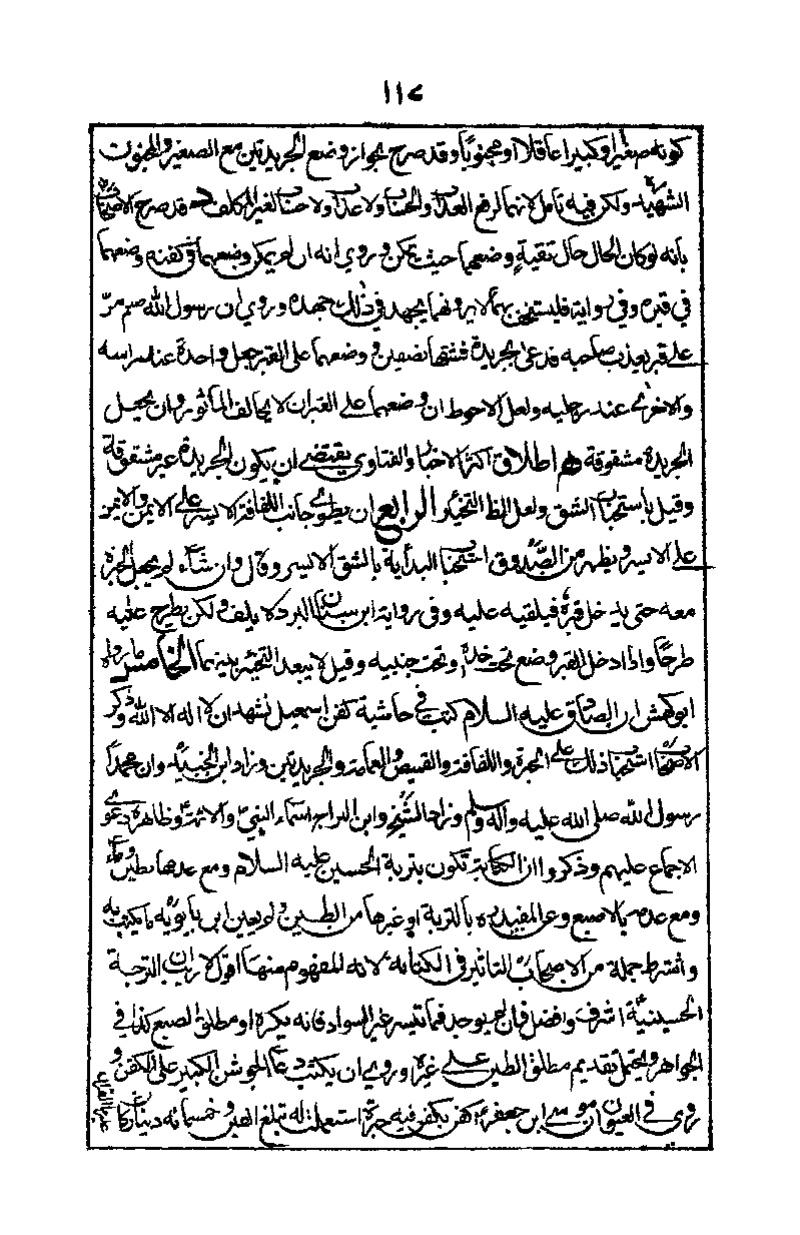 ١١٧
كونه صغيرا وكبيرا عاقلا او مجنونا وقد صرح بجواز وضع الجريدتين مع الصغير والمجنون
الشهيد ولكن فيه تامل لانهما لرفع العذاب والحساب ولا عذاب ولا حساب لغير المكلف قد صرح الاصحاب
بانه لو كان الحال حال تقية وضعهما حيث يمكن وروي انه ان لم يمكن وضعهما في كفنه وضعهما
في قبره وفي رواية بهما يجهد في ذلك جهده وروي ان رسول الله صم مرّ
على قبر يعذب صاحبه فدعى بجريدة فشقها نصفين ووضعهما على القبر جعل واحدة عند راسه
والاخرى عند رجليه ولعل الاحوط ان وضعهما على القبر ان لا يخالف الماثور وان يجعل
الجريدة مشقوقة اطلاق اكثر الاخبار والفتاوي يقتضي ان يكون الجريدة غير مشقوقة
وقيل باستحباب الشق ولعل التخيير الرابع ان يطوى جانب اللفافة الايسر على الايمن والايمن
على الايسر ويظهر من الصدوق استحباب البدأية بالشق الايسر وقال وان شاء لم يجعل الحبرة
معه حتى يدخل قبره فيلقيه عليه وفي رواية ابن سنان البرد لا يلف ولكن يطرح عليه
طرحًا واذا ادخل القبر وضع تحت خده وتحت جنبيه وقيل لا يبعد التخيير بينهما الخامس ما رواه
ابو كهمش ان الصادق عليه السلام كتب في حاشية كفن اسمعيل يشهد ان لا اله الا الله وذكر
الاصحاب استحباب ذلك على الحبرة واللفافة والقميص والعمامة والجريدتين وزاد ابن الجنيد وان محمدًا
رسول الله صلى الله عليه وآله وسلم وزاد الشيخ وابن البراج اسماء النبي والائمة وظاهره دعوى
الاجماع عليهم وذكروا ان الكتابة تكون بتربة الحسين عليه السلام ومع عدمها بطين وماء
ومع عدمه بالاصبع وعن المفيد ره بالتربة او غيرها من الطين ولم يعين ابن بابويه ما يكتب به
واشترط جملة من الاصحاب التاثير في الكتابة لانه المفهوم منها اقول لا ريب ان التربة
الحسينية اشرف وافضل فان لم يوجد فما تيسر غير السواد فانه يكره او مطلق الصبغ كذا في
الجواهر ويحتمل تقديم مطلق الطين على غيره وروي ان يكتب دعاء الجوشن الكبير على الكفن و
روي في العيون ان موسى ابن جعفر ع كفن بكفن فيه حبرة استعملت له تبلغ الفين وخمسمائة دينار كان
عليها القران